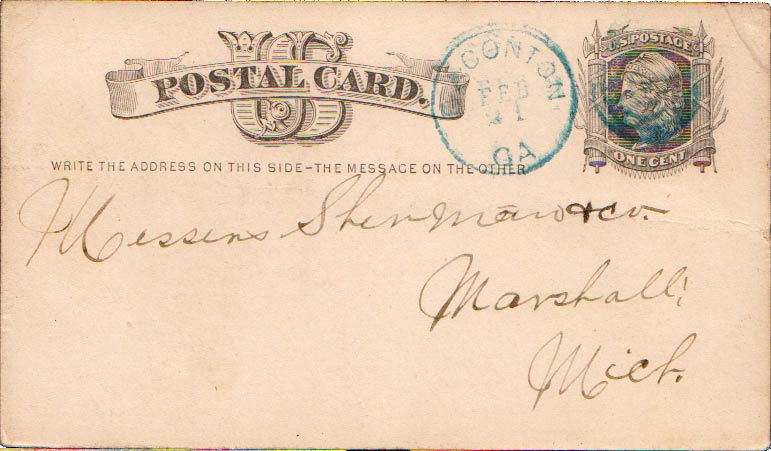 US
POSTAL CARD.
WRITE THE ADDRESS ON THIS SIDE—THE MESSAGE ON THE OTHER
CONTON
FEB
21
GA
U.S. POSTAGE
ONE CENT
Messers Sherman & Co.
Marshall,
Mich.